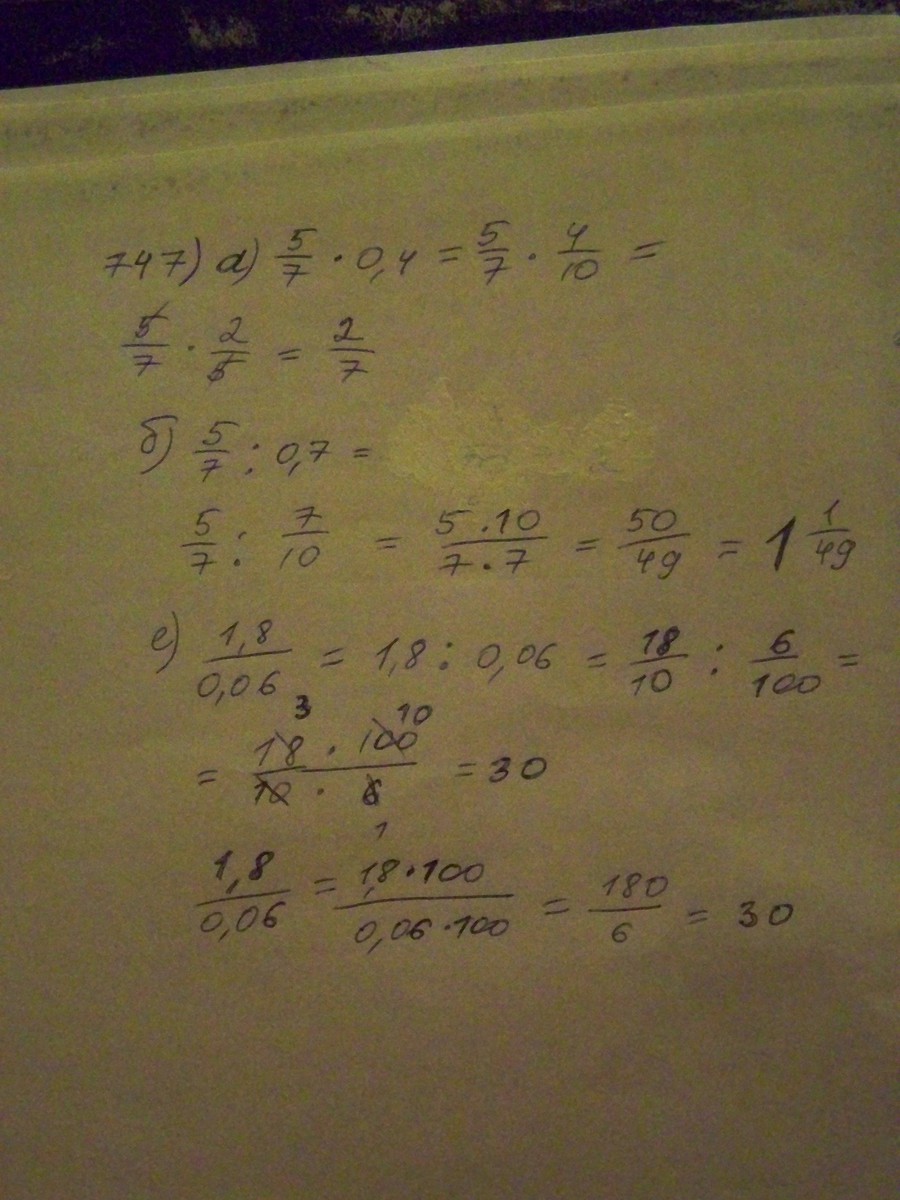 747) а) 5/7 · 0,4 = 5/7 · 4/10 =
5/7 · 2/5 = 2/7
б) 5/7 : 0,7 =
5/7 : 7/10 = 5·10/7·7 = 50/49 = 1 1/49
е) 1,8/0,06 = 1,8 : 0,06 = 18/10 : 6/100 =
3 10
= 18 · 100/10 · 6 = 30
1
1,8/0,06 = 1,8·100/0,06·100 = 180/6 = 30